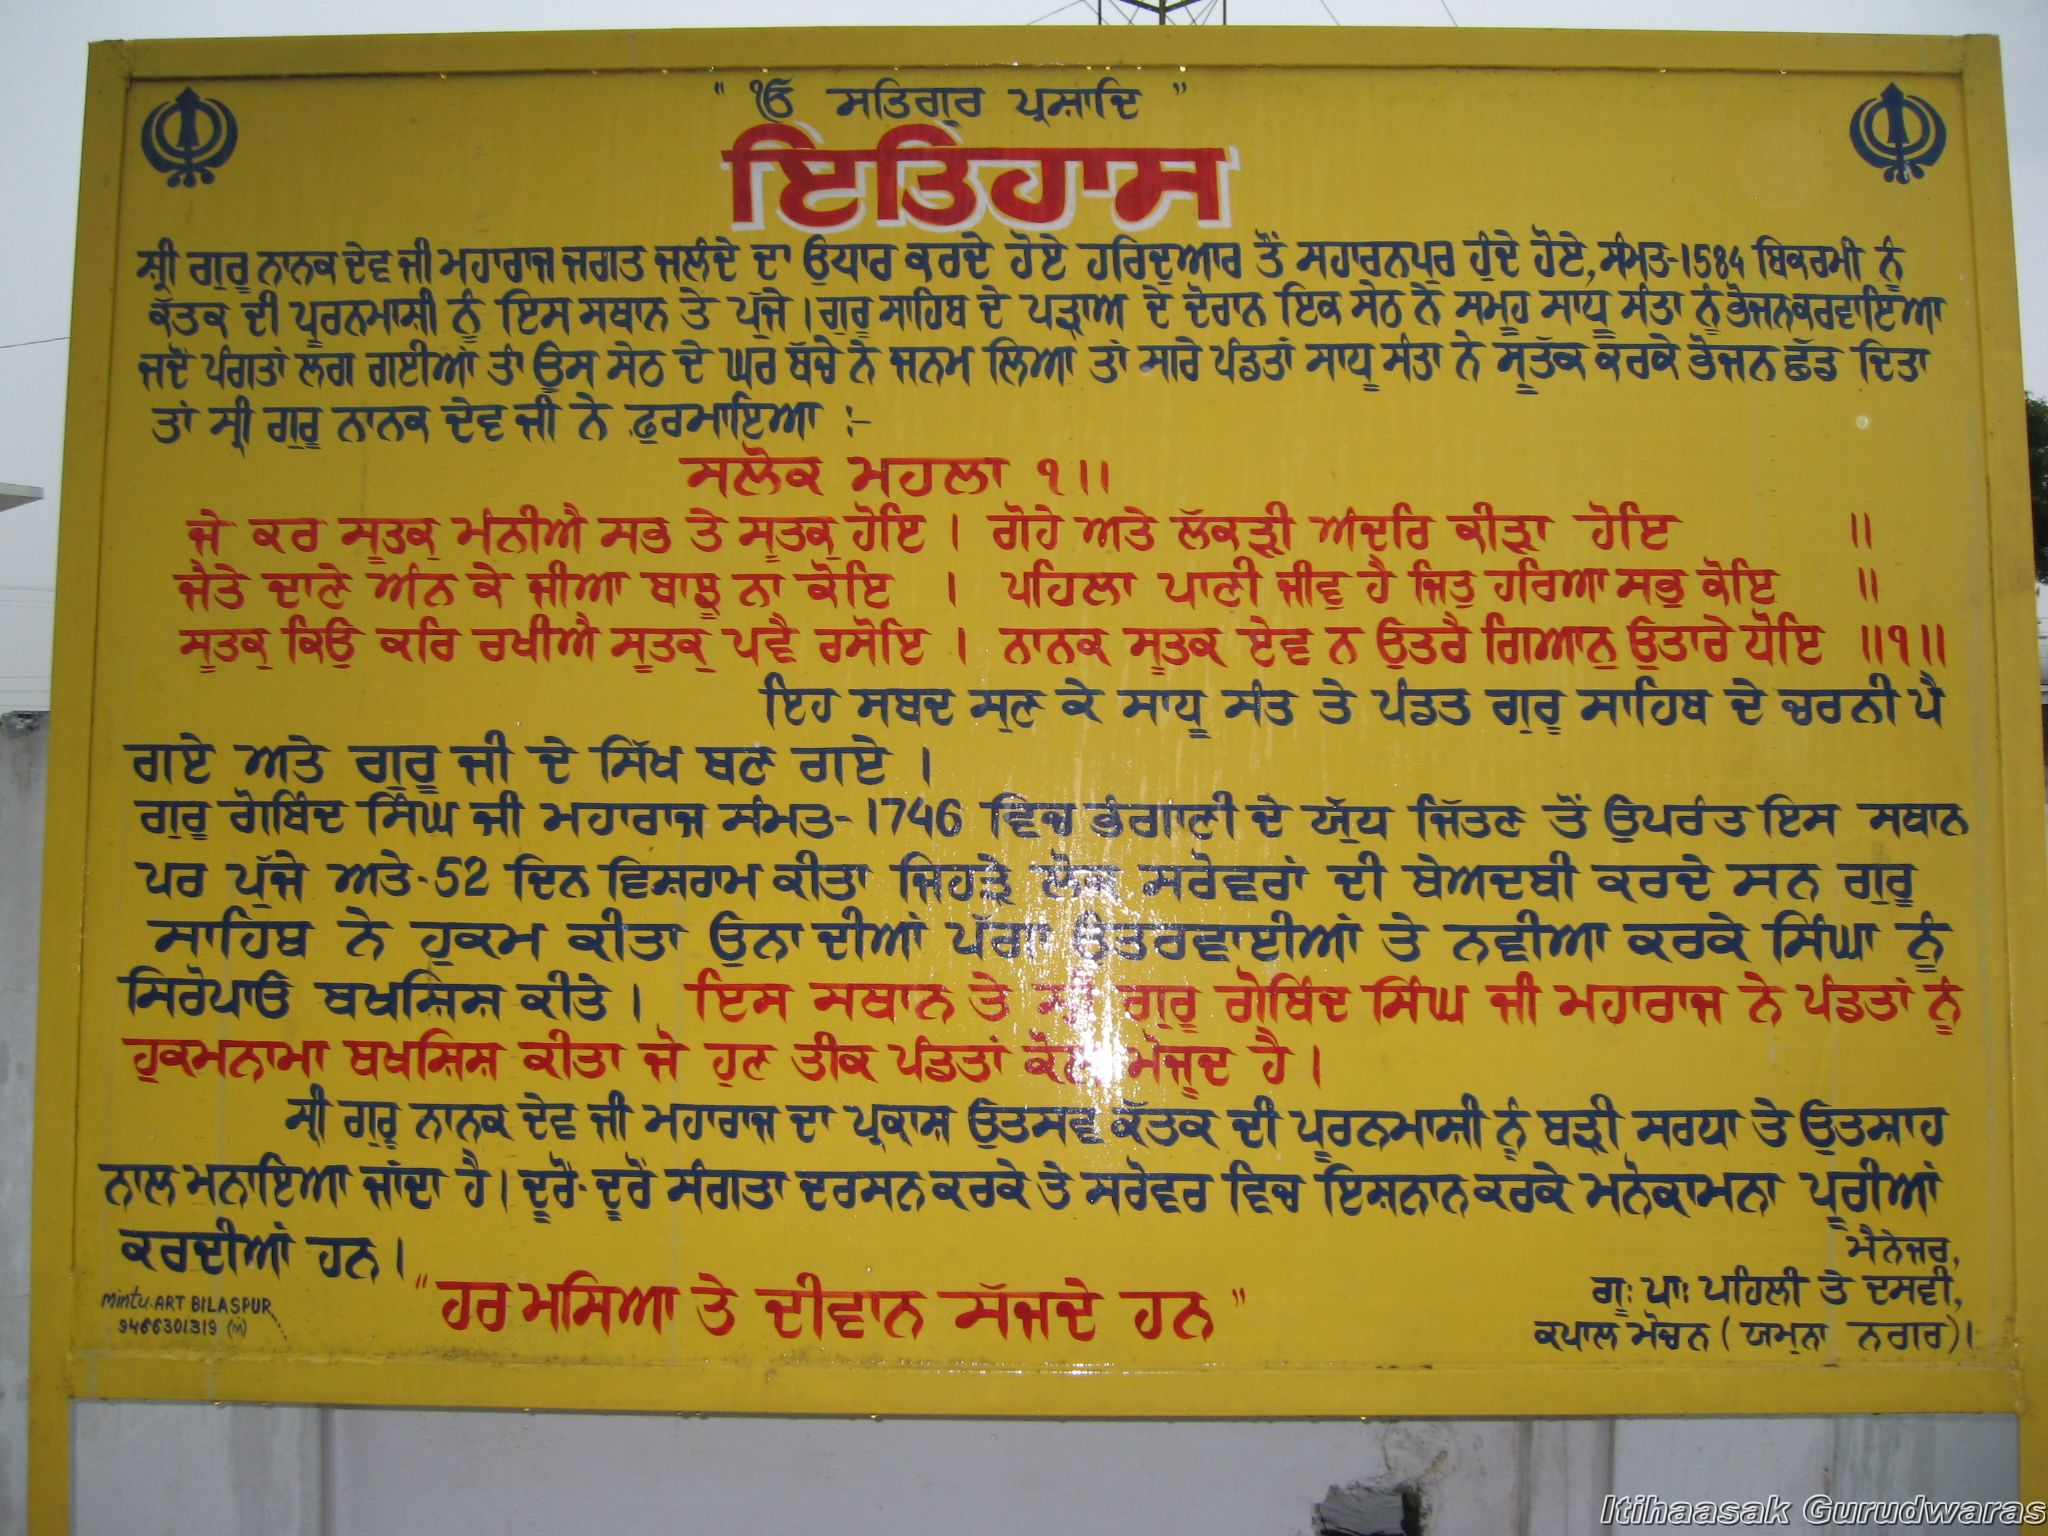 " ੴ ਸਤਿਗੁਰ ਪ੍ਰਸ਼ਾਦਿ "
ਇਤਿਹਾਸ
ਸ਼੍ਰੀ ਗੁਰੂ ਨਾਨਕ ਦੇਵ ਜੀ ਮਹਾਰਾਜ ਜਗਤ ਜਲੰਦੇ ਦਾ ਉਧਾਰ ਕਰਦੇ ਹੋਏ ਹਰਿਦੁਆਰ ਤੋਂ ਸਹਾਰਨਪੁਰ ਹੁੰਦੇ ਹੋਏ, ਸੰਮਤ-1584 ਬਿਕਰਮੀ ਨੂੰ
ਕੱਤਕ ਦੀ ਪੂਰਨਮਾਸ਼ੀ ਨੂੰ ਇਸ ਸਥਾਨ ਤੇ ਪੁੱਜੇ । ਗੁਰੂ ਸਾਹਿਬ ਦੇ ਪੜਾਅ ਦੇ ਦੋਰਾਨ ਇਕ ਸੇਠ ਨੇ ਸਮੂਹ ਸਾਧੂ ਸੰਤਾ ਨੂੰ ਭੋਜਨ ਕਰਵਾਇਆ
ਜਦੋਂ ਪੰਗਤਾਂ ਲੱਗ ਗਈਆਂ ਤਾਂ ਉਸ ਸੇਠ ਦੇ ਘਰ ਬੱਚੇ ਨੇ ਜਨਮ ਲਿਆ ਤਾਂ ਸਾਰੇ ਪੰਡਤਾਂ ਸਾਧੂ ਸੰਤਾ ਨੇ ਸੂਤੱਕ ਕਰਕੇ ਭੋਜਨ ਛੱਡ ਦਿਤਾ
ਤਾਂ ਸ੍ਰੀ ਗੁਰੂ ਨਾਨਕ ਦੇਵ ਜੀ ਨੇ ਫ਼ੁਰਮਾਇਆ :-
ਸਲੋਕ ਮਹਲਾ ੧।।
ਜੇ ਕਰ ਸੂਤਕੁ ਮੰਨੀਐ ਸਭ ਤੇ ਸੂਤਕੁ ਹੋਇ । ਗੋਹੇ ਅਤੇ ਲੱਕੜੀ ਅੰਦਰਿ ਕੀੜਾ ਹੋਇ ॥
ਜੈਤੇ ਦਾਣੇ ਅੰਨ ਕੇ ਜੀਆ ਬਾਝੂ ਨਾ ਕੋਇ । ਪਹਿਲਾ ਪਾਣੀ ਜੀਵੁ ਹੈ ਜਿਤੁ ਹਰਿਆ ਸਭੁ ਕੋਇ ॥
ਸੂਤਕੁ ਕਿਉ ਕਰਿ ਰਖੀਐ ਸੂਤਕੁ ਪਵੈ ਰਸੋਇ । ਨਾਨਕ ਸੂਤਕ ਏਵ ਨ ਉਤਰੈ ਗਿਆਨੁ ਉਤਾਰੇ ਧੋਇ ॥੧॥
ਇਹ ਸਬਦ ਸੁਣ ਕੇ ਸਾਧੂ ਸੰਤ ਤੇ ਪੰਡਤ ਗੁਰੂ ਸਾਹਿਬ ਦੇ ਚਰਨੀ ਪੈ
ਗਏ ਅਤੇ ਗੁਰੂ ਜੀ ਦੇ ਸਿੱਖ ਬਣ ਗਏ ।
ਗੁਰੂ ਗੋਬਿੰਦ ਸਿੰਘ ਜੀ ਮਹਾਰਾਜ ਸੰਮਤ-1746 ਵਿਚ ਭੰਗਾਣੀ ਦੇ ਯੁੱਧ ਜਿੱਤਣ ਤੋਂ ਉਪਰੰਤ ਇਸ ਸਥਾਨ
ਪਰ ਪੁੱਜੇ ਅਤੇ-52 ਦਿਨ ਵਿਸ਼ਰਾਮ ਕੀਤਾ ਜਿਹੜੇ ਲੋਕ ਸਰੋਵਰਾਂ ਦੀ ਬੇਅਦਬੀ ਕਰਦੇ ਸਨ ਗੁਰੂ
ਸਾਹਿਬ ਨੇ ਹੁਕਮ ਕੀਤਾ ਉਨਾ ਦੀਆਂ ਪੱਗਾ ਉਤਰਵਾਈਆਂ ਤੇ ਨਵੀਆ ਕਰਕੇ ਸਿੰਘਾ ਨੂੰ
ਸਿਰੋਪਾਓ ਬਖਸ਼ਿਸ਼ ਕੀਤੇ । ਇਸ ਸਥਾਨ ਤੇ ਸ੍ਰੀ ਗੁਰੂ ਗੋਬਿੰਦ ਸਿੰਘ ਜੀ ਮਹਾਰਾਜ ਨੇ ਪੰਡਤਾਂ ਨੂੰ
ਹੁਕਮਨਾਮਾ ਬਖਸ਼ਿਸ਼ ਕੀਤਾ ਜੋ ਹੁਣ ਤੀਕ ਪੰਡਤਾਂ ਕੋਲ ਮੋਜੂਦ ਹੈ ।
ਸ੍ਰੀ ਗੁਰੂ ਨਾਨਕ ਦੇਵ ਜੀ ਮਹਾਰਾਜ ਦਾ ਪ੍ਰਕਾਸ਼ ਉਤਸਵ ਕੱਤਕ ਦੀ ਪੂਰਨਮਾਸ਼ੀ ਨੂੰ ਬੜੀ ਸਰਧਾ ਤੇ ਉਤਸ਼ਾਹ
ਨਾਲ ਮਨਾਇਆ ਜਾਂਦਾ ਹੈ । ਦੂਰੋਂ-ਦੂਰੋਂ ਸੰਗਤਾ ਦਰਸਨ ਕਰਕੇ ਤੇ ਸਰੋਵਰ ਵਿਚ ਇਸ਼ਨਾਨ ਕਰਕੇ ਮਨੋਕਾਮਨਾ ਪੂਰੀਆਂ
ਕਰਦੀਆਂ ਹਨ ।
" ਹਰ ਮਸਿਆ ਤੇ ਦੀਵਾਨ ਸੱਜਦੇ ਹਨ "
ਮੈਨੇਜਰ,
ਗੁ: ਪਾ: ਪਹਿਲੀ ਤੇ ਦਸਵੀ,
ਕਪਾਲ ਮੋਚਨ ( ਯਮੁਨਾ ਨਗਰ)।
Mintu ART BILASPUR
9466301319 (M)
Itihaasak Gurudwaras